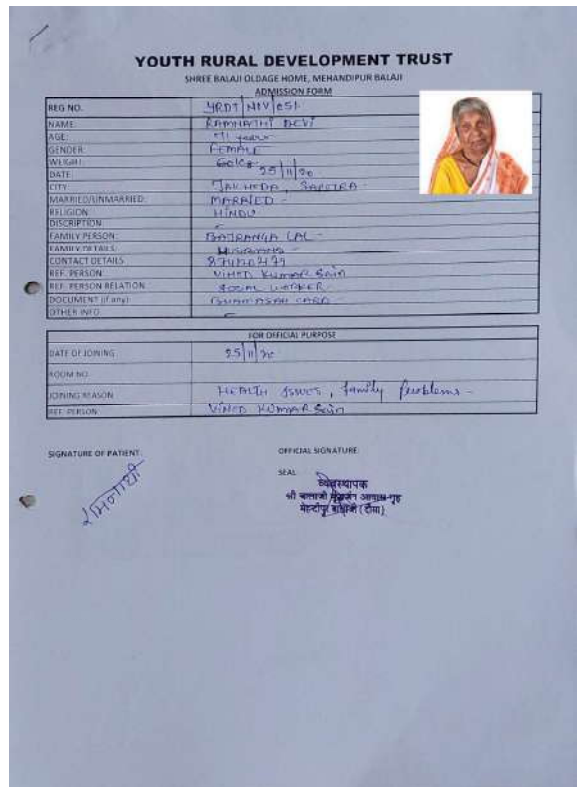 YOUTH RURAL DEVELOPMENT TRUST
SHREE BALAJI OLDAGE HOME, MEHANDIPUR BALAJI
ADMISSION FORM
REG NO.
NAME: RAMNATHI DEVI
AGE: years
GENDER: FEMALE
WEIGHT: 60kg
DATE: 25/11/20
CITY
MARRIED/UNMARRIED: MARRIED -
RELIGION HINDU
DISCRIPTION
FAMILY PERSON: BAJRANGA LAL -
FAMILY DETAILS
CONTACT DETAILS
REF. PERSON VINOD KUMAR Sain
REF. PERSON RELATION SOCIAL WORKER
DOCUMENT (if any) CARD
OTHER INFO
FOR OFFICIAL PURPOSE
DATE OF JOINING 25/11/20
ROOM NO.
JOINING REASON HEALTH ISSUES, family problems -
REF. PERSON VINOD KUMAR Sain
SIGNATURE OF PATIENT: OFFICIAL SIGNATURE:
SEAL
रामनाथी
व्यवस्थापक
श्री बालाजी आवास गृह
मेहन्दीपुर बालाजी (दौसा)